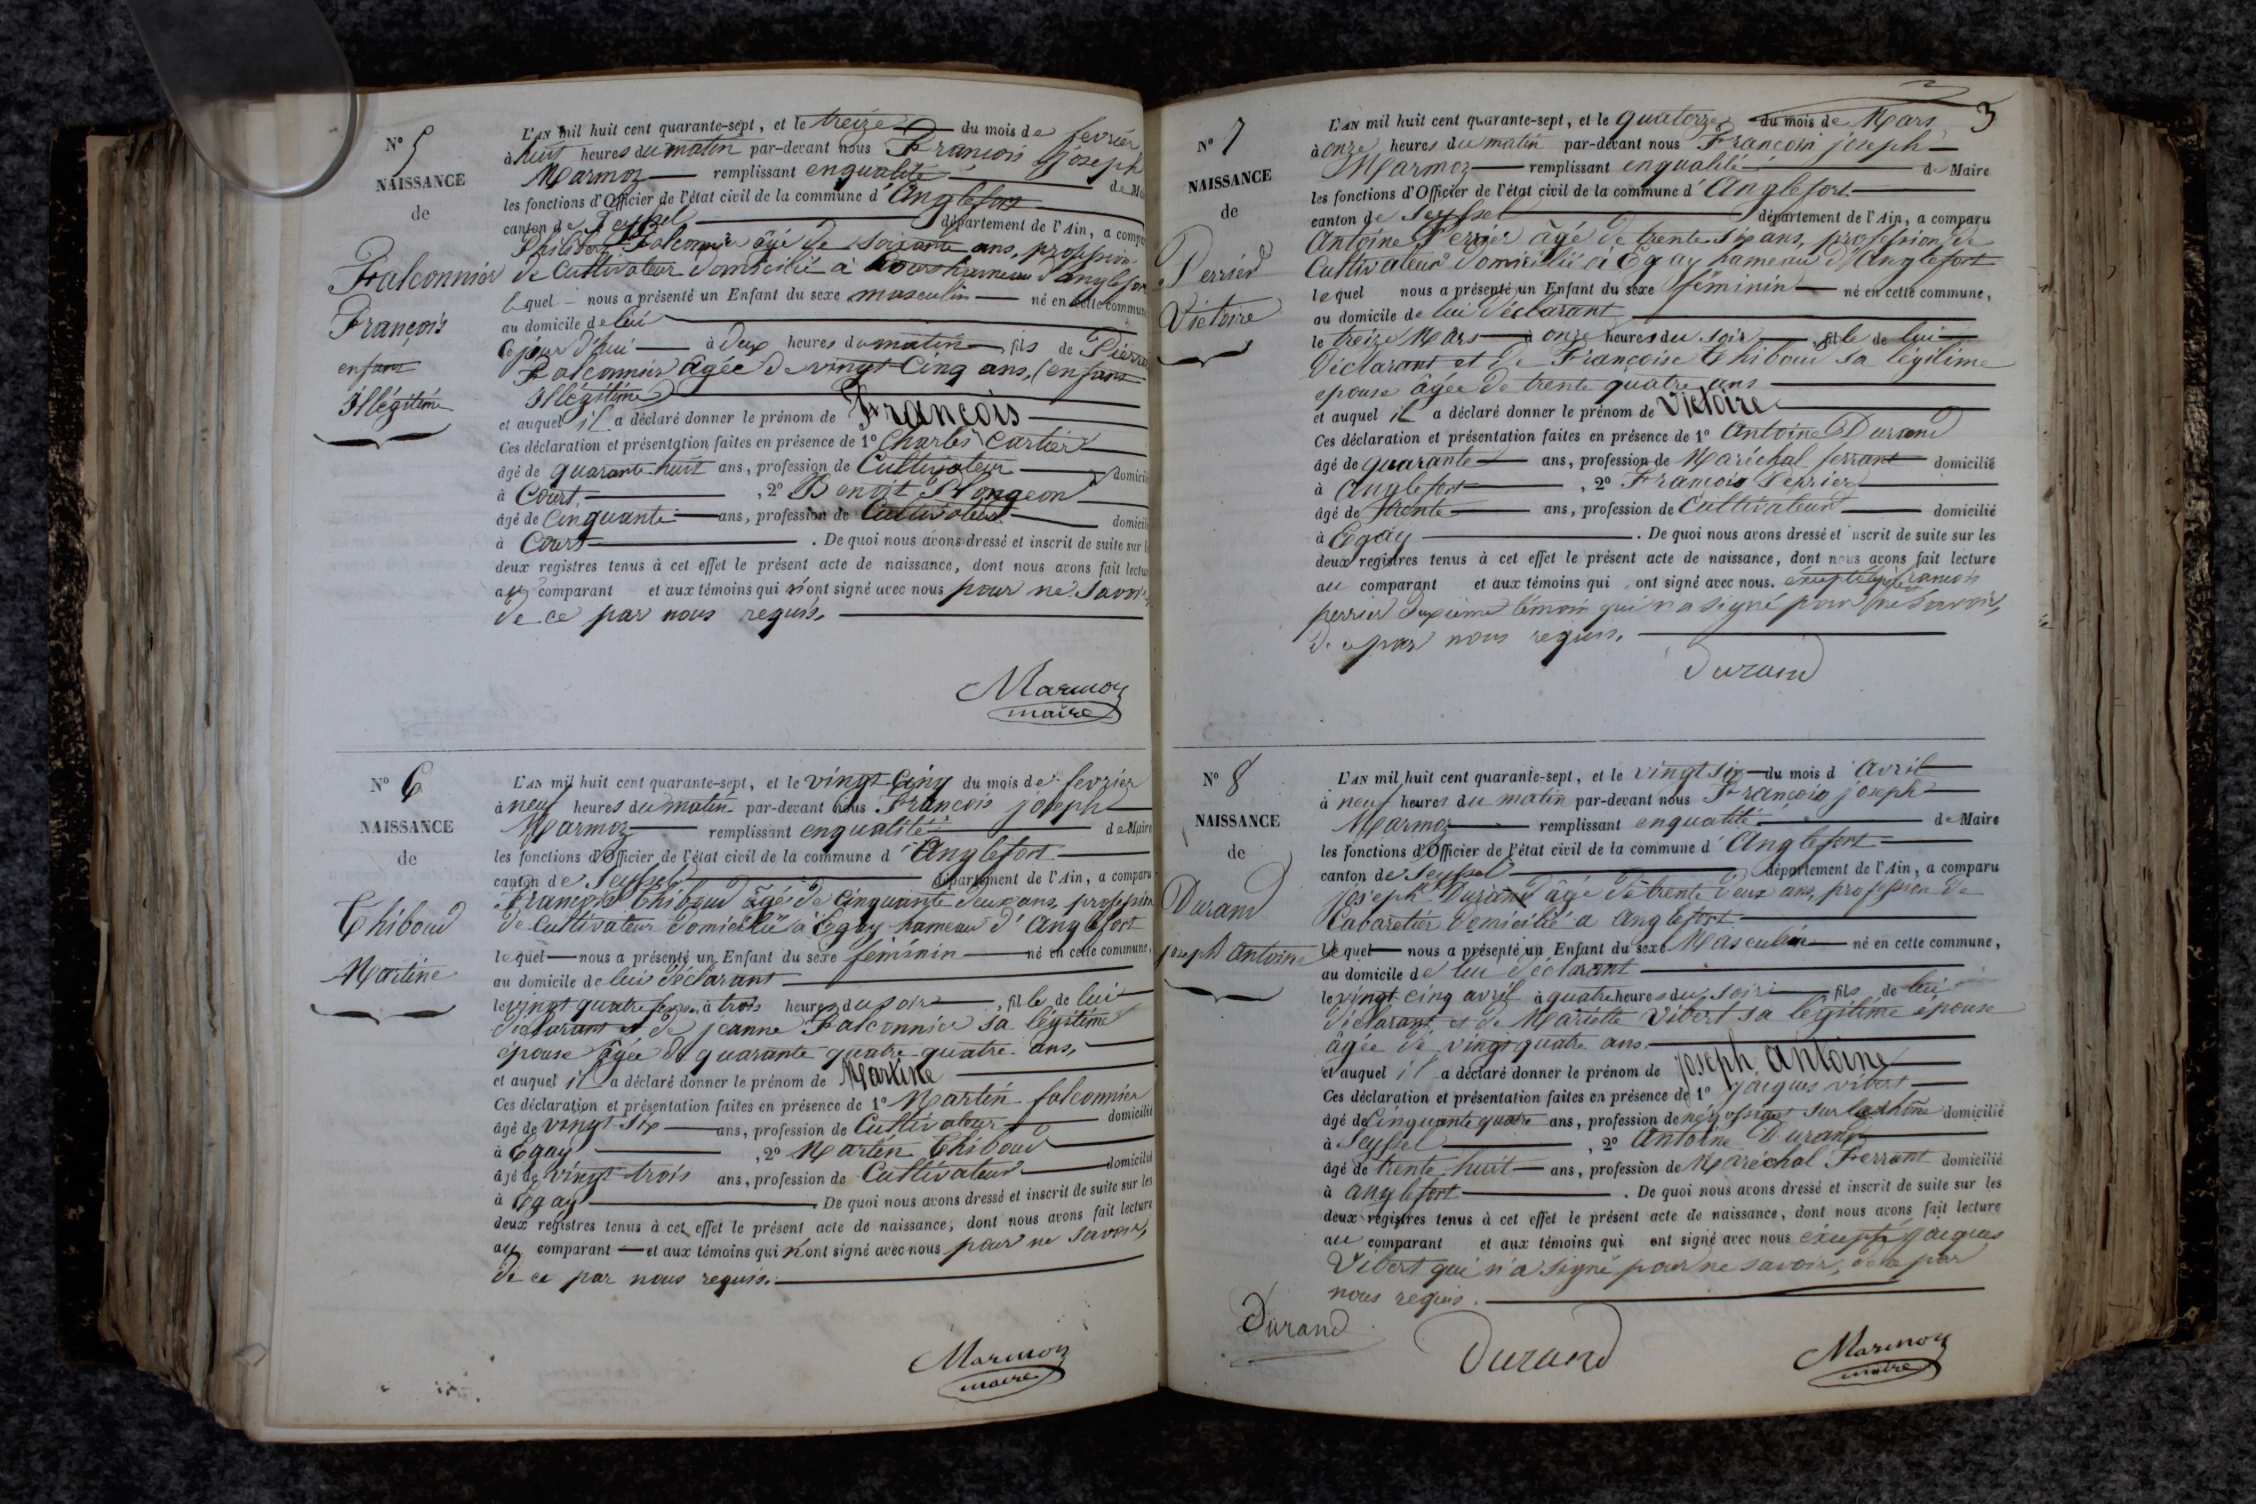 N° 5
NAISSANCE
de
Falconnier
François
enfant
Illégitime
L'AN mil huit cent quarante-sept, et le treize du mois de fevrier
à huit heures du matin par-devant nous François joseph
Marmoz remplissant enqualité de Ma
les fonctions d'Officier de l'état civil de la commune d'Anglefort
canton de Seyssel département de l'Ain, a compa
Philibert Falconnier âgé de soixante ans, profession
de Cultivateur domicilié à Cours hameau d'anglefor
lequel nous a présenté un Enfant du sexe masculin né en cette commune
au domicile de lui
Ce jour d'hui à deux heures du matin fils de
Falconnier âgée de vingt Cinq ans, (enfant
Illégitime)
et auquel il a déclaré donner le prénom de François
Ces déclaration et présentation faites en présence de 1° Charles Cartier
âgé de quarante-huit ans, profession de Cultivateur domicili
à Court , 2° Benoit Plongeon
âgé de Cinquante ans, profession de Cultivateur domicili
à Cours . De quoi nous avons dressé et inscrit de suite sur l
deux registres tenus à cet effet le présent acte de naissance, dont nous avons fait lectu
au comparant et aux témoins qui n'ont signé avec nous pour ne Savoir
de ce par nous requis.
Marmoz
maire
N° 6
NAISSANCE
de
Thiboud
Martine
L'AN mil huit cent quarante-sept, et le vingt-Cinq du mois de fevrier
à neuf heures du matin par-devant nous François joseph
Marmoz remplissant enqualité de Maire
les fonctions d'Officier de l'état civil de la commune d'Anglefort
canton de Seyssel département de l'Ain, a comparu
François Thiboud âgé de Cinquante deux ans, profession
de Cultivateur domicilié à Egay hameau d'Anglefort
lequel nous a présenté un Enfant du sexe féminin né en cette commune,
au domicile de lui déclarant
le vingt quatre à trois heures du soir , fille de lui
déclarant et de jeanne Falconnier sa légitime
épouse âgée de quarante quatre quatre ans,
et auquel il a déclaré donner le prénom de Martine
Ces déclaration et présentation faites en présence de 1° Martin falconnier
âgé de vingt-six ans, profession de Cultivateur domicilié
à Egay , 2° Martin Thiboud
âgé de vingt-trois ans, profession de Cultivateur domicilié
à Egay De quoi nous avons dressé et inscrit de suite sur les
deux registres tenus à cet effet le présent acte de naissance, dont nous avons fait lecture
au comparant et aux témoins qui n'ont signé avec nous pour ne Savoir,
de ce par nous requis.
Marmoz
maire
3
N° 7
NAISSANCE
de
Perrier
Victoire
L'AN mil huit cent quarante-sept, et le quatorze du mois de Mars
à onze heures du matin par-devant nous François joseph
Marmoz remplissant enqualité de Maire
les fonctions d'Officier de l'état civil de la commune d'Anglefort
canton de Seyssel département de l'Ain, a comparu
Antoine Perrier âgé de trente six ans, profession de
Cultivateur domicilié à Egay hameau d'Anglefort
lequel nous a présenté un Enfant du sexe féminin né en cette commune,
au domicile de lui déclarant
le treize Mars à onze heures du soir fille de lui
déclarant et de Françoise Thiboud sa légitime
epouse âgée de trente quatre ans
et auquel il a déclaré donner le prénom de Victoire
Ces déclaration et présentation faites en présence de 1° Antoine Durand
âgé de quarante ans, profession de Maréchal ferrant domicilié
à Anglefort , 2° François Perrier
âgé de trente ans, profession de Cultivateur domicilié
à Egay . De quoi nous avons dressé et inscrit de suite sur les
deux registres tenus à cet effet le présent acte de naissance, dont nous avons fait lecture
au comparant et aux témoins qui ont signé avec nous. François
perrier deuxième témoin qui n'a signé pour ne Savoir,
de ce par nous requis.
Durand
N° 8
NAISSANCE
de
Durand
joseph Antoine
L'AN mil huit cent quarante-sept, et le vingt six du mois d'Avril
à neuf heures du matin par-devant nous François joseph
Marmoz remplissant enqualité de Maire
les fonctions d'Officier de l'état civil de la commune d'Anglefort
canton de Seyssel département de l'Ain, a comparu
joseph Durand âgé de trente deux ans, profession de
Cabaretier domicilié à Anglefort
lequel nous a présenté un Enfant du sexe Masculin né en cette commune,
au domicile de lui déclarant
le vingt-cinq avril à quatre heures du soir fils de lui
déclarant et de Mariette Vibert sa légitime épouse
âgée de vingt quatre ans.
et auquel il a déclaré donner le prénom de joseph Antoine
Ces déclaration et présentation faites en présence de 1° jacques vibert
âgé de Cinquante quatre ans, profession de négossiant sur le rhône domicilié
à Seyssel , 2° Antoine Durand
âgé de trente-huit ans, profession de Maréchal Ferrant domicilié
à anglefort . De quoi nous avons dressé et inscrit de suite sur les
deux registres tenus à cet effet le présent acte de naissance, dont nous avons fait lecture
au comparant et aux témoins qui ont signé avec nous éxcepté jacques
Vibert qui n'a signé pour ne savoir, de ce par
nous requis.
Durand
Durand
Marmoz
maire